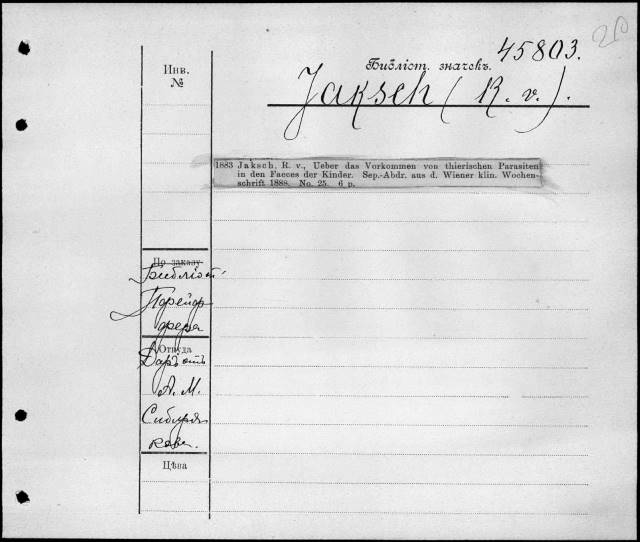 20
45803.
Библіот. значекъ.
Jaksch (R. v.).
Инв.
№
1883 Jaksch, R. v., Ueber das Vorkommen von thierischen Parasiten
in den Faeces der Kinder. Sep.-Abdr. aus d. Wiener klin. Wochen-
schrift 1888. No. 25. 6 p.
По заказу
Библіот.
Пфейф-
фера
Откуда
Даръ отъ
А. М.
Сибиря-
кова.
Цѣна